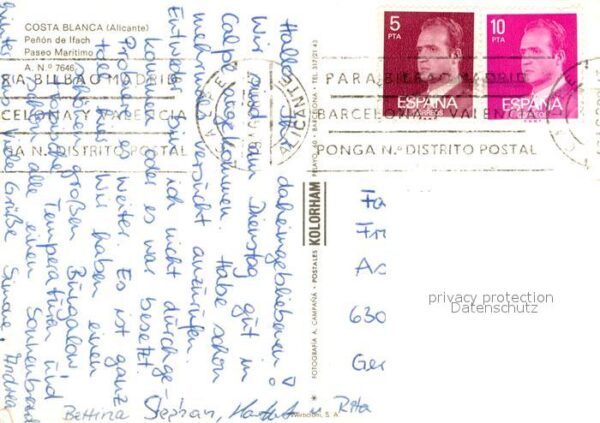 COSTA BLANCA (Alicante)
Peñón de Ifach
Paseo Marítimo
A. N.º 7646
5
PTA
ESPAÑA
CORREOS
10
PTA
ESPAÑA
CORREOS
PARA BILBAO MADRID
BARCELONA Y VALENCIA
PONGA N.º DISTRITO POSTAL
RA BILBAO MADRID
CELONA Y VALENCIA
GA N.º DISTRITO POSTAL
ALICANTE
Hallo, Ihr daheimgebliebenen!
Wir sind am Dienstag gut in
Calpe angekommen. Habe schon
mehrmals versucht anzurufen.
Entweder bin ich nicht durchge-
kommen oder es war besetzt.
Probiere es weiter. Es ist ganz
toll hier. Wir haben einen
schönen großen Bungalow
Temperaturen und
schon alle einen Sonnenbrand
Viele Grüße Simone, Andrea
Bettina Stephan, Rita
FOTOGRAFIA A. CAMPAÑÁ · POSTALES KOLORHAM
PELAYO · BARCELONA · TEL. 317 01 43
Fa
Fr
Ac
630
Ger
privacy protection
Datenschutz